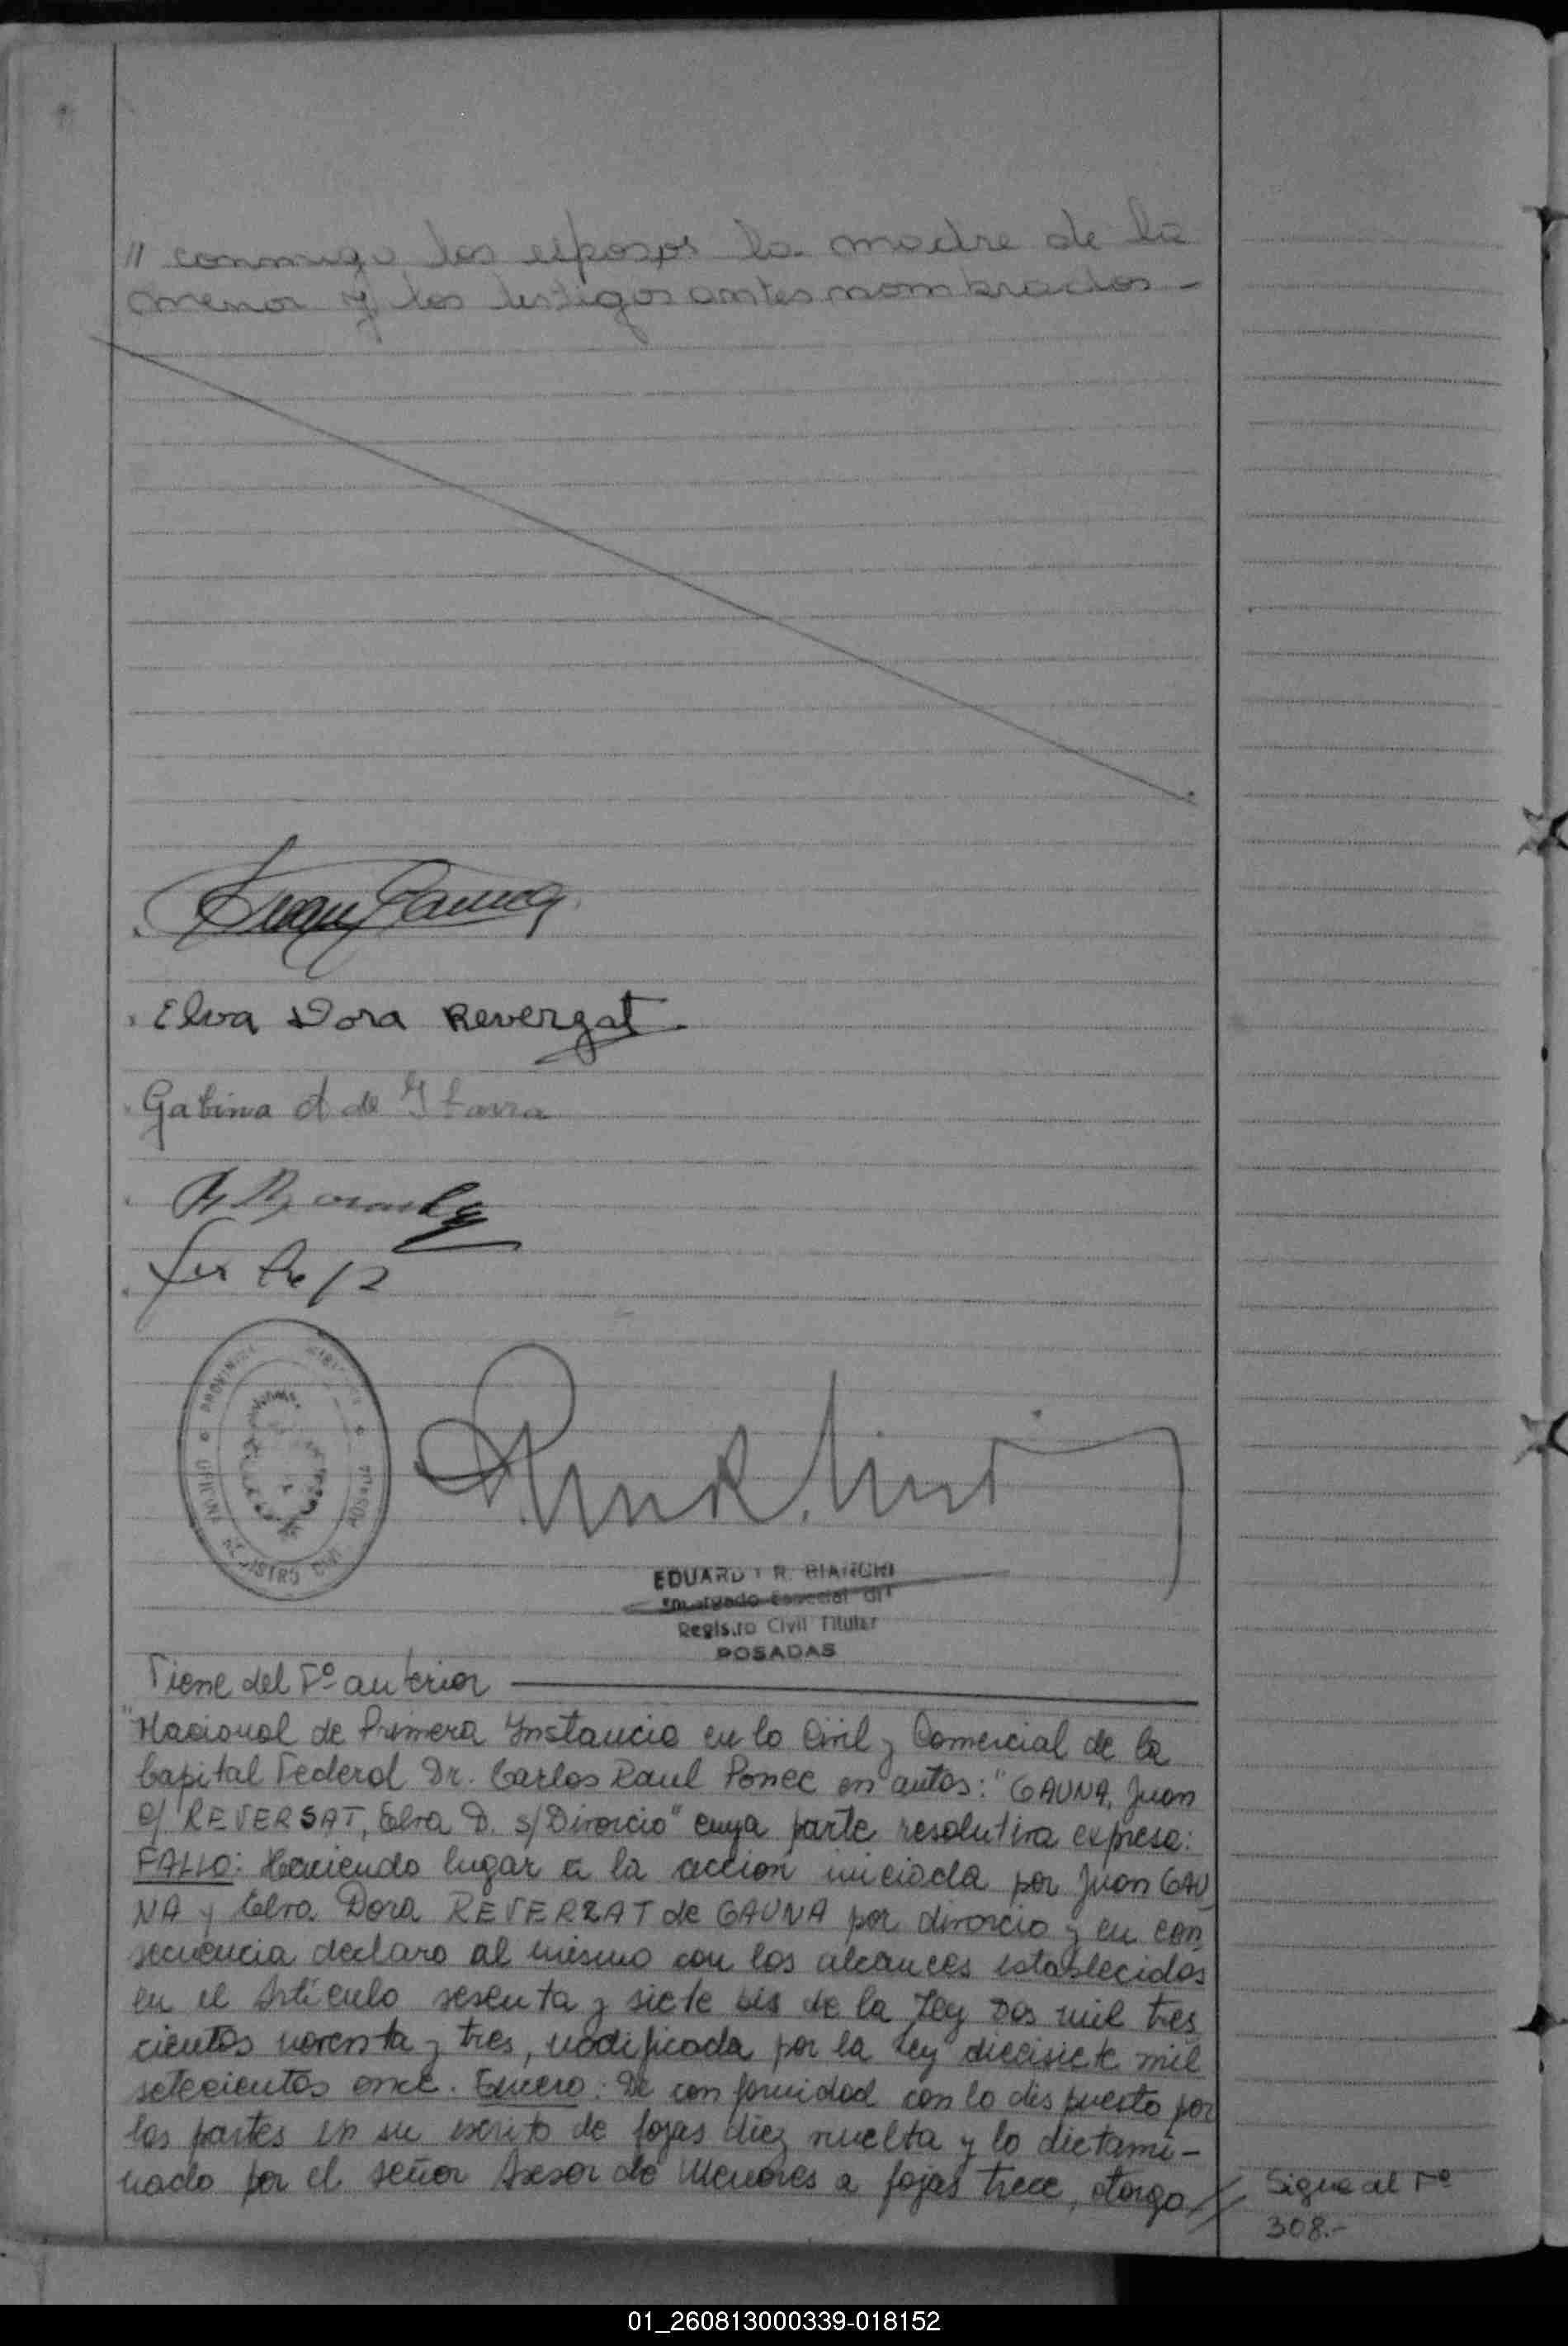 // conmigo, los esposos la madre de la
menor y los testigos antes nombrados -
Juan Gauna
Elva Dora Reverzat
Gabina A de Ybarra
PROVINCIA MISIONES
OFICINA REGISTRO CIVIL POSADAS
EDUARDO R. BIANCHI
Encargado Especial del
Registro Civil Titular
POSADAS
Viene del Fº anterior
"Nacional de Primera Instancia en lo Civil y Comercial de la
Capital Federal Dr. Carlos Raul Ponce en autos: "GAUNA, Juan
c/ REVERSAT, Elva D. s/Divorcio" cuya parte resolutiva expresa:
FALLO: Haciendo lugar a la acción iniciada por Juan GAU
NA y Elva Dora REVERZAT de GAUNA por divorcio y en con
secuencia declaro al mismo con los alcances establecidos
en el Artículo sesenta y siete bis de la Ley Dos mil tres
cientos noventa y tres, modificada por la Ley diecisiete mil
setecientos once. : De conformidad con lo dispuesto por
las partes en su escrito de fojas diez vuelta y lo dictami-
nado por el señor Asesor de Menores a fojas trece, otorgo//
Sigue al Fº
308.-
01_260813000339-018152